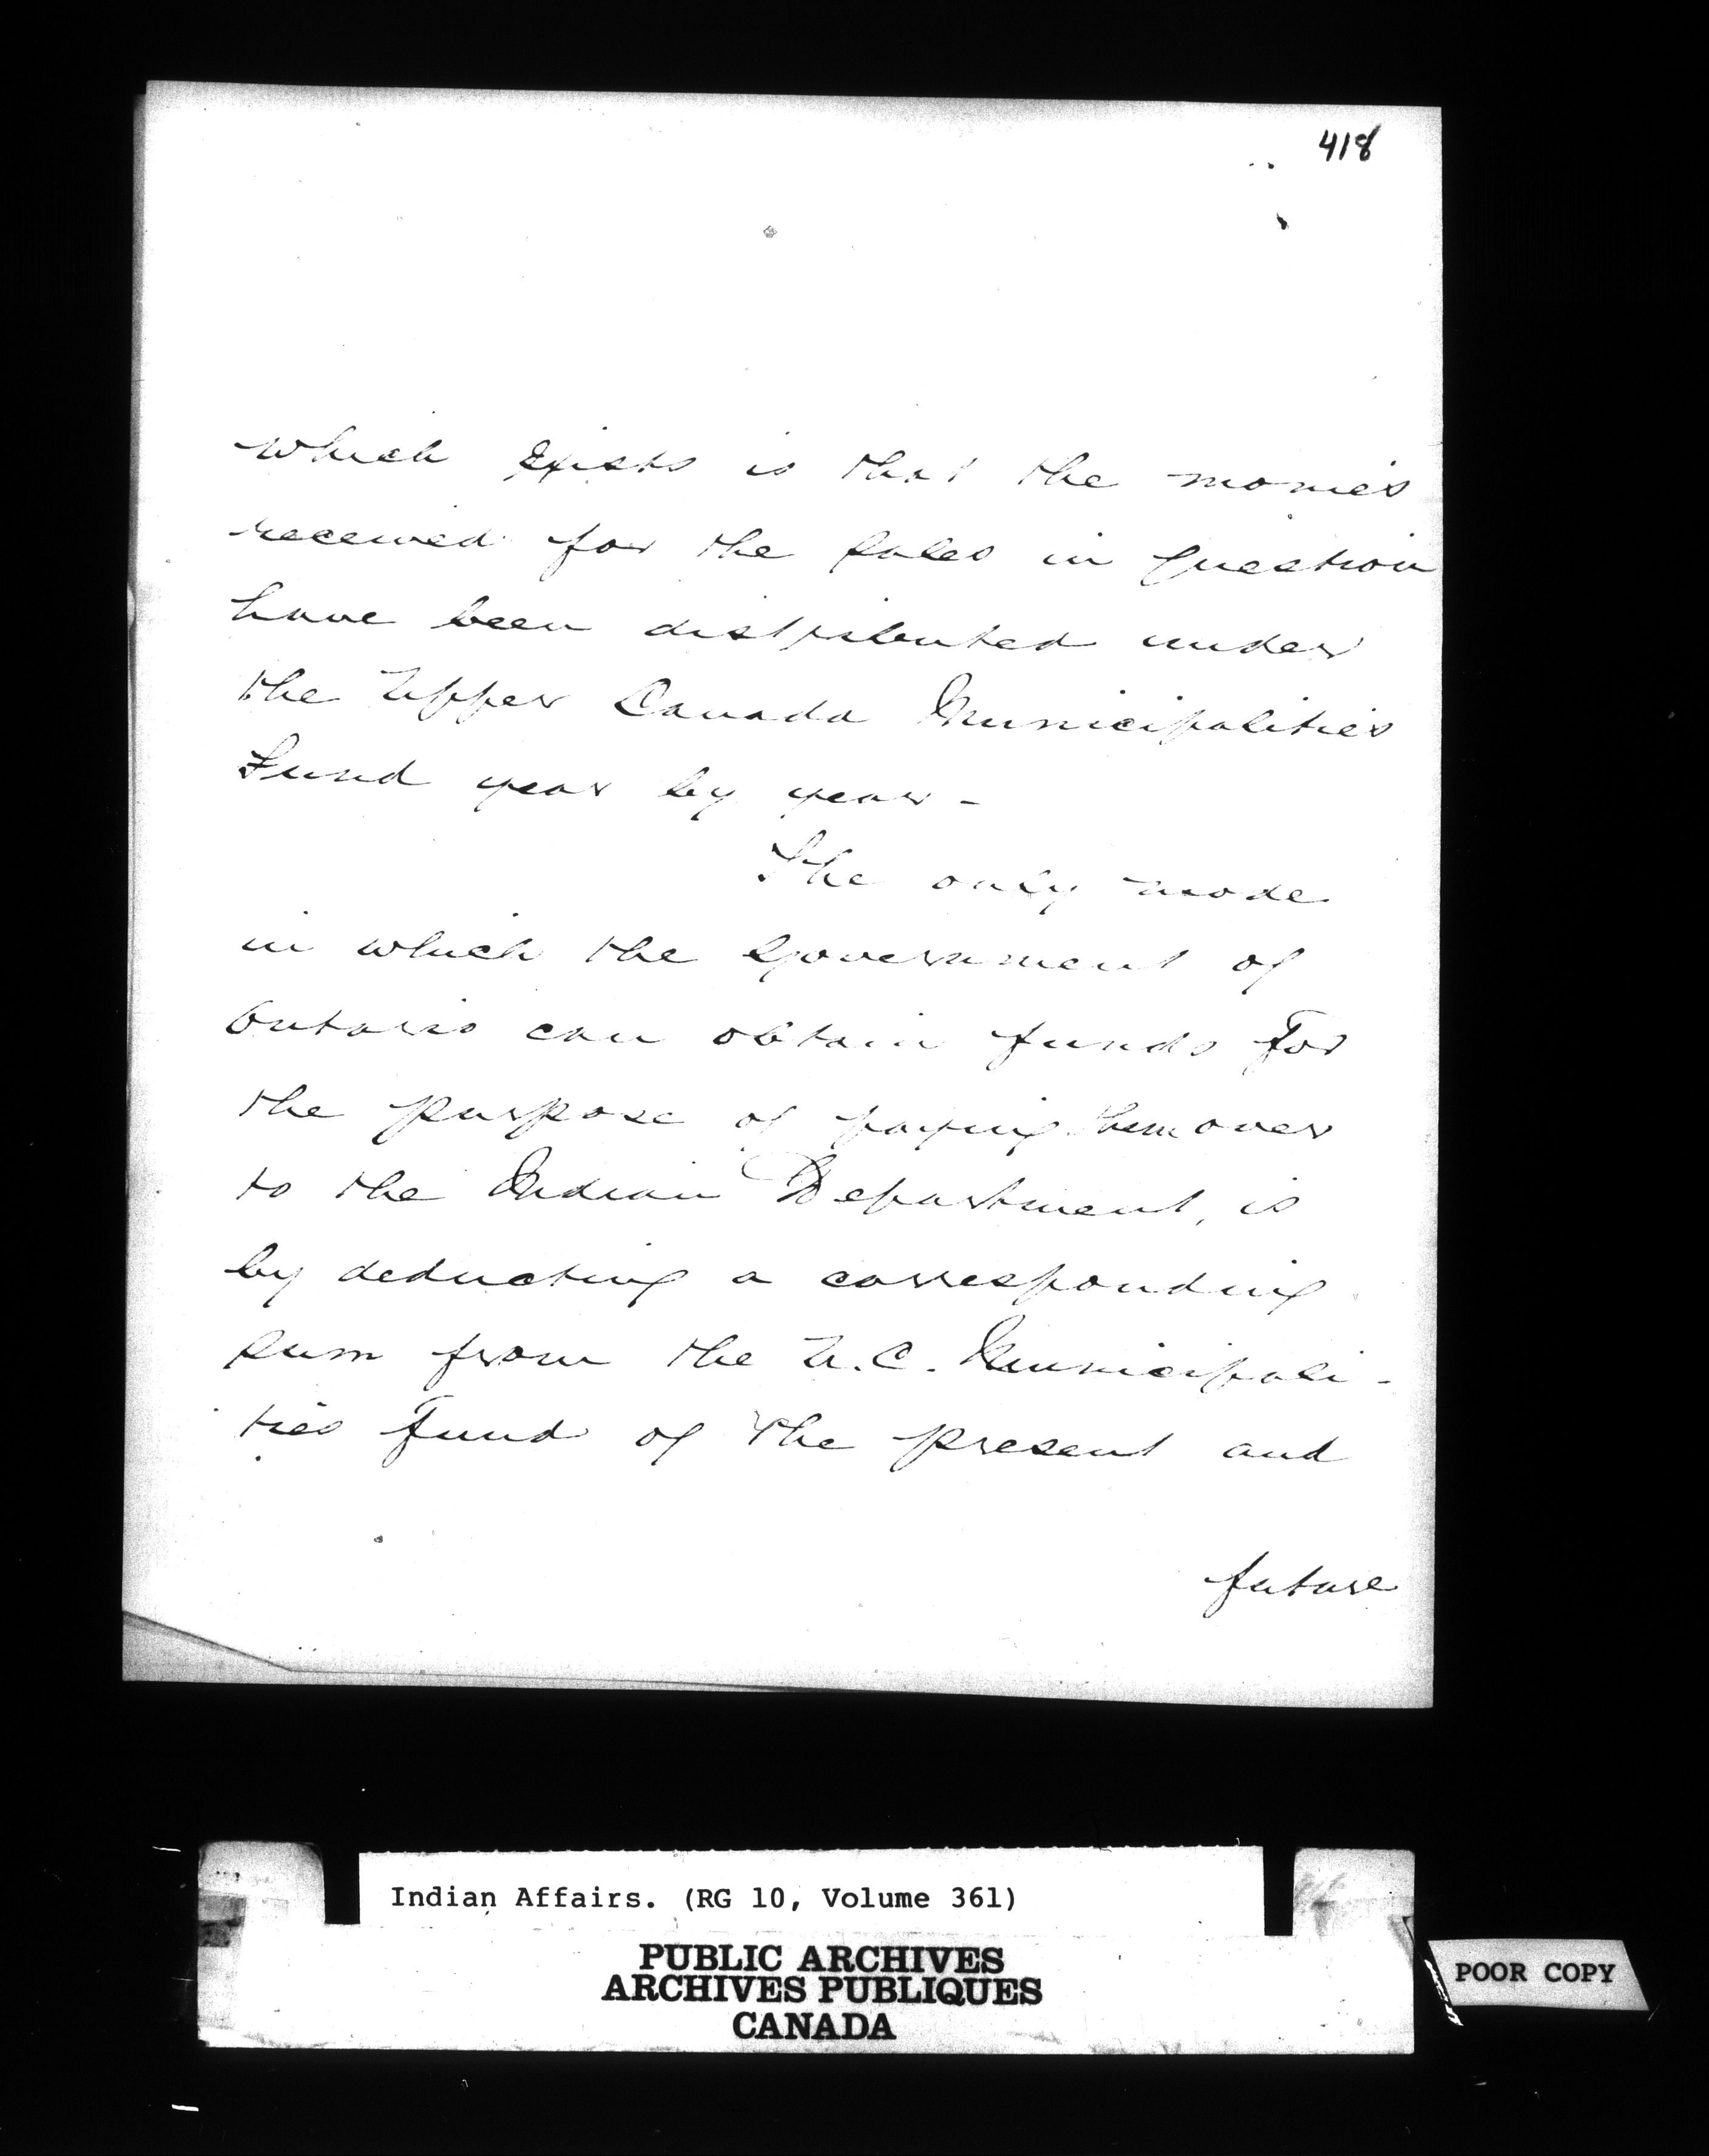 418
which exists is that the monies
received for the sales in question
have been distributed under
the Upper Canada Municipalities
Fund year by year -
The only mode
in which the Government of
Ontario can obtain funds for
the purpose of paying them over
to the Indian Department, is
by deducting a corresponding
sum from the U.C. Municipali-
ties Fund of the present and
future
Indian Affairs. (RG 10, Volume 361)
PUBLIC ARCHIVES
ARCHIVES PUBLIQUES
CANADA
POOR COPY